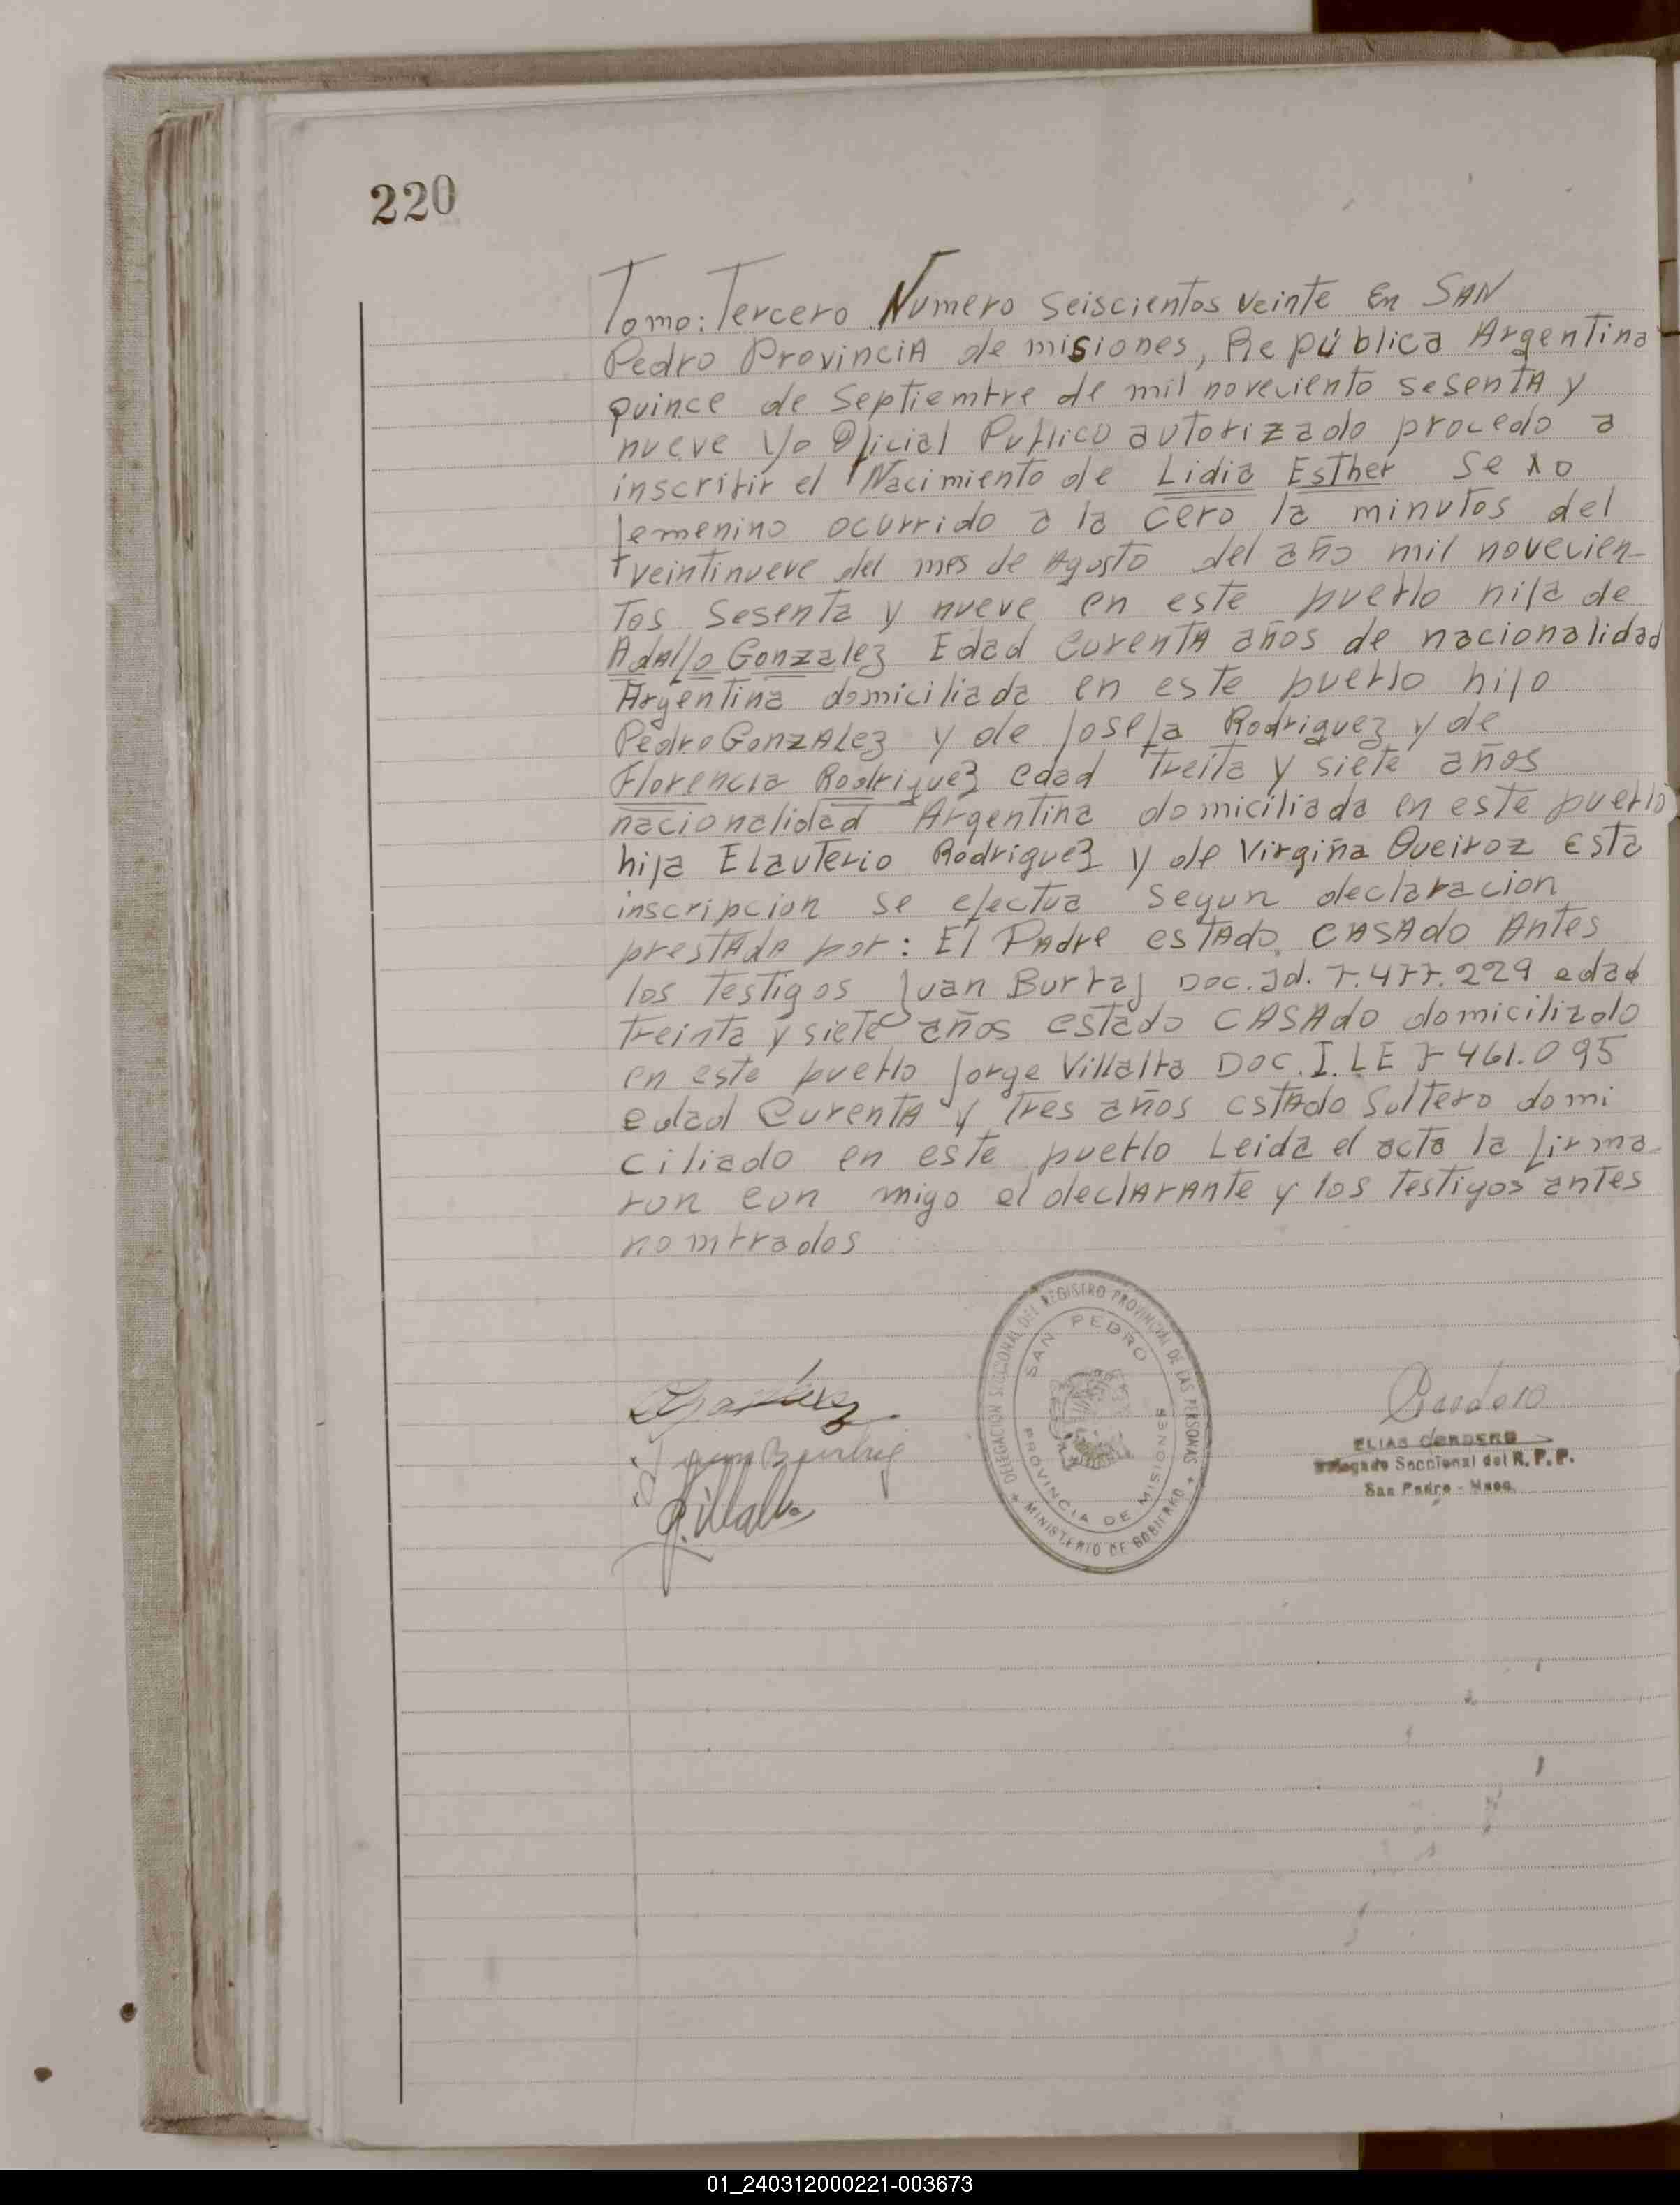 220
Tomo: Tercero Numero Seiscientos veinte En SAN
Pedro ProvinciA de misiones, República Argentina
quince de Septiembre de mil noveciento sesentA y
nueve Yo Oficial Publico autorizado procedo a
inscribir el Nacimiento de Lidia Esther Sexo
femenino ocurrido a la cero la minutos del
veintinueve del mes de Agosto del año mil novecien-
tos sesenta y nueve en este pueblo hija de
Adolfo Gonzalez Edad CurentA años de nacionalidad
Argentina domiciliada en este pueblo hijo
Pedro GonzAlez y de Josefa Rodriguez y de
Florencia Rodriguez edad treita y siete años
nacionalidad Argentina domiciliada en este pueblo
hija Elauterio Rodriguez y de Virgiña Queiroz Esta
inscripcion se efectua segun declaracion
prestAdA por: El PAdre estAdo CASAdo Antes
los testigos Juan Doc. Id. 7.477.229 edad
treinta y siete años estado CASAdo domicilizdo
en este pueblo Jorge Villalba Doc. I. LE 7461.095
edad CurentA y tres años estAdo Soltero domi
ciliado en este pueblo Leida el acta la firma-
ron con migo el declArAnte y los testigos antes
nombrados
DELEGACION SECCIONAL DEL REGISTRO PROVINCIAL DE LAS PERSONAS
SAN PEDRO
PROVINCIA DE MISIONES
MINISTERIO DE GOBIERNO
Villalba
Cordero
ELIAS CORDERO
Delegado Seccional del R. P. P.
San Pedro - Mnes.
01_240312000221-003673